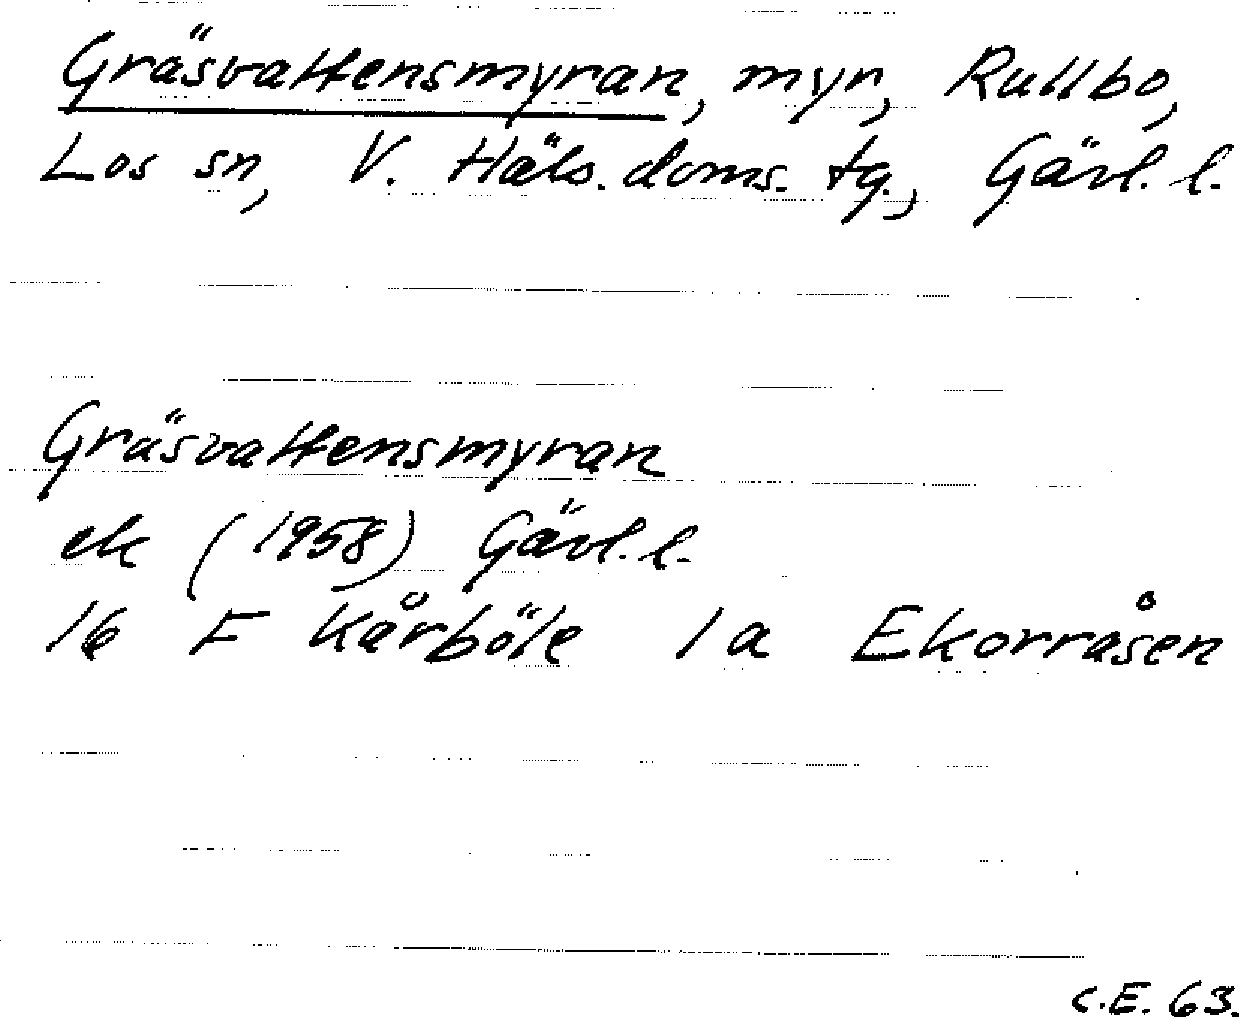 Gräsvattensmyran, myr, Rullbo,
Los sn, V. Häls. doms. tg., Gävl. l.
Gräsvattensmyran
ek (1958) Gävl. l.
16 F Kårböle 1a Ekorråsen
C.E. 63.